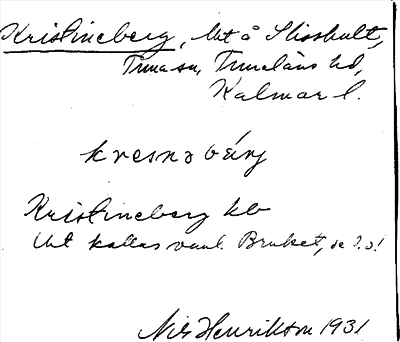 Kristineberg, Ut å Slisshult,
Tunaläns hd,
Kalmar l.
kresnabärj
Kristineberg kb
Ut kallas vanl. Bruket, se d. o!
Nils Henrikson 1931